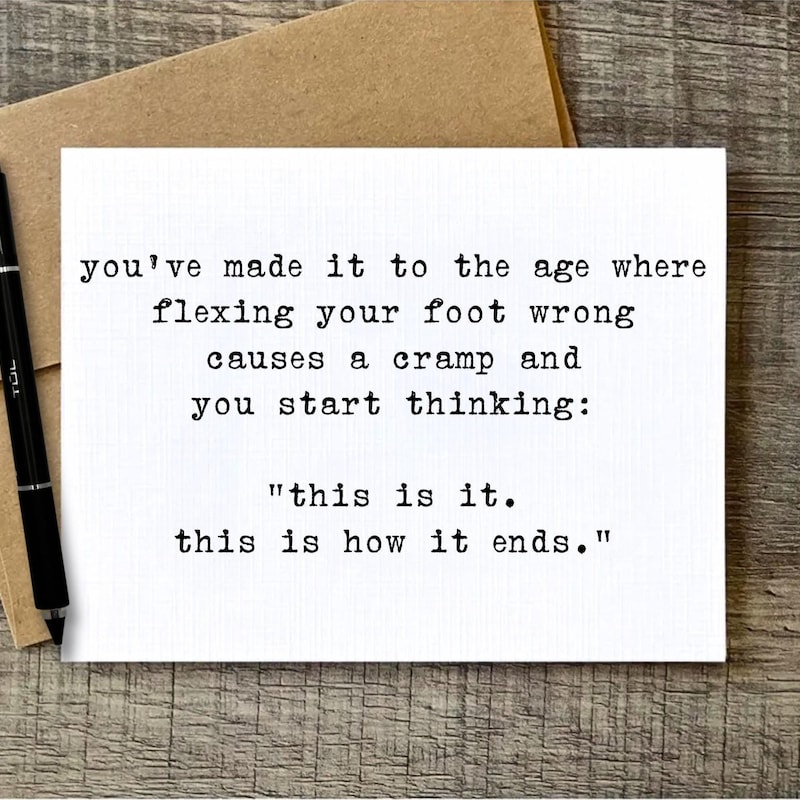 you've made it to the age where
flexing your foot wrong
causes a cramp and
you start thinking:
"this is it.
this is how it ends."
TUL